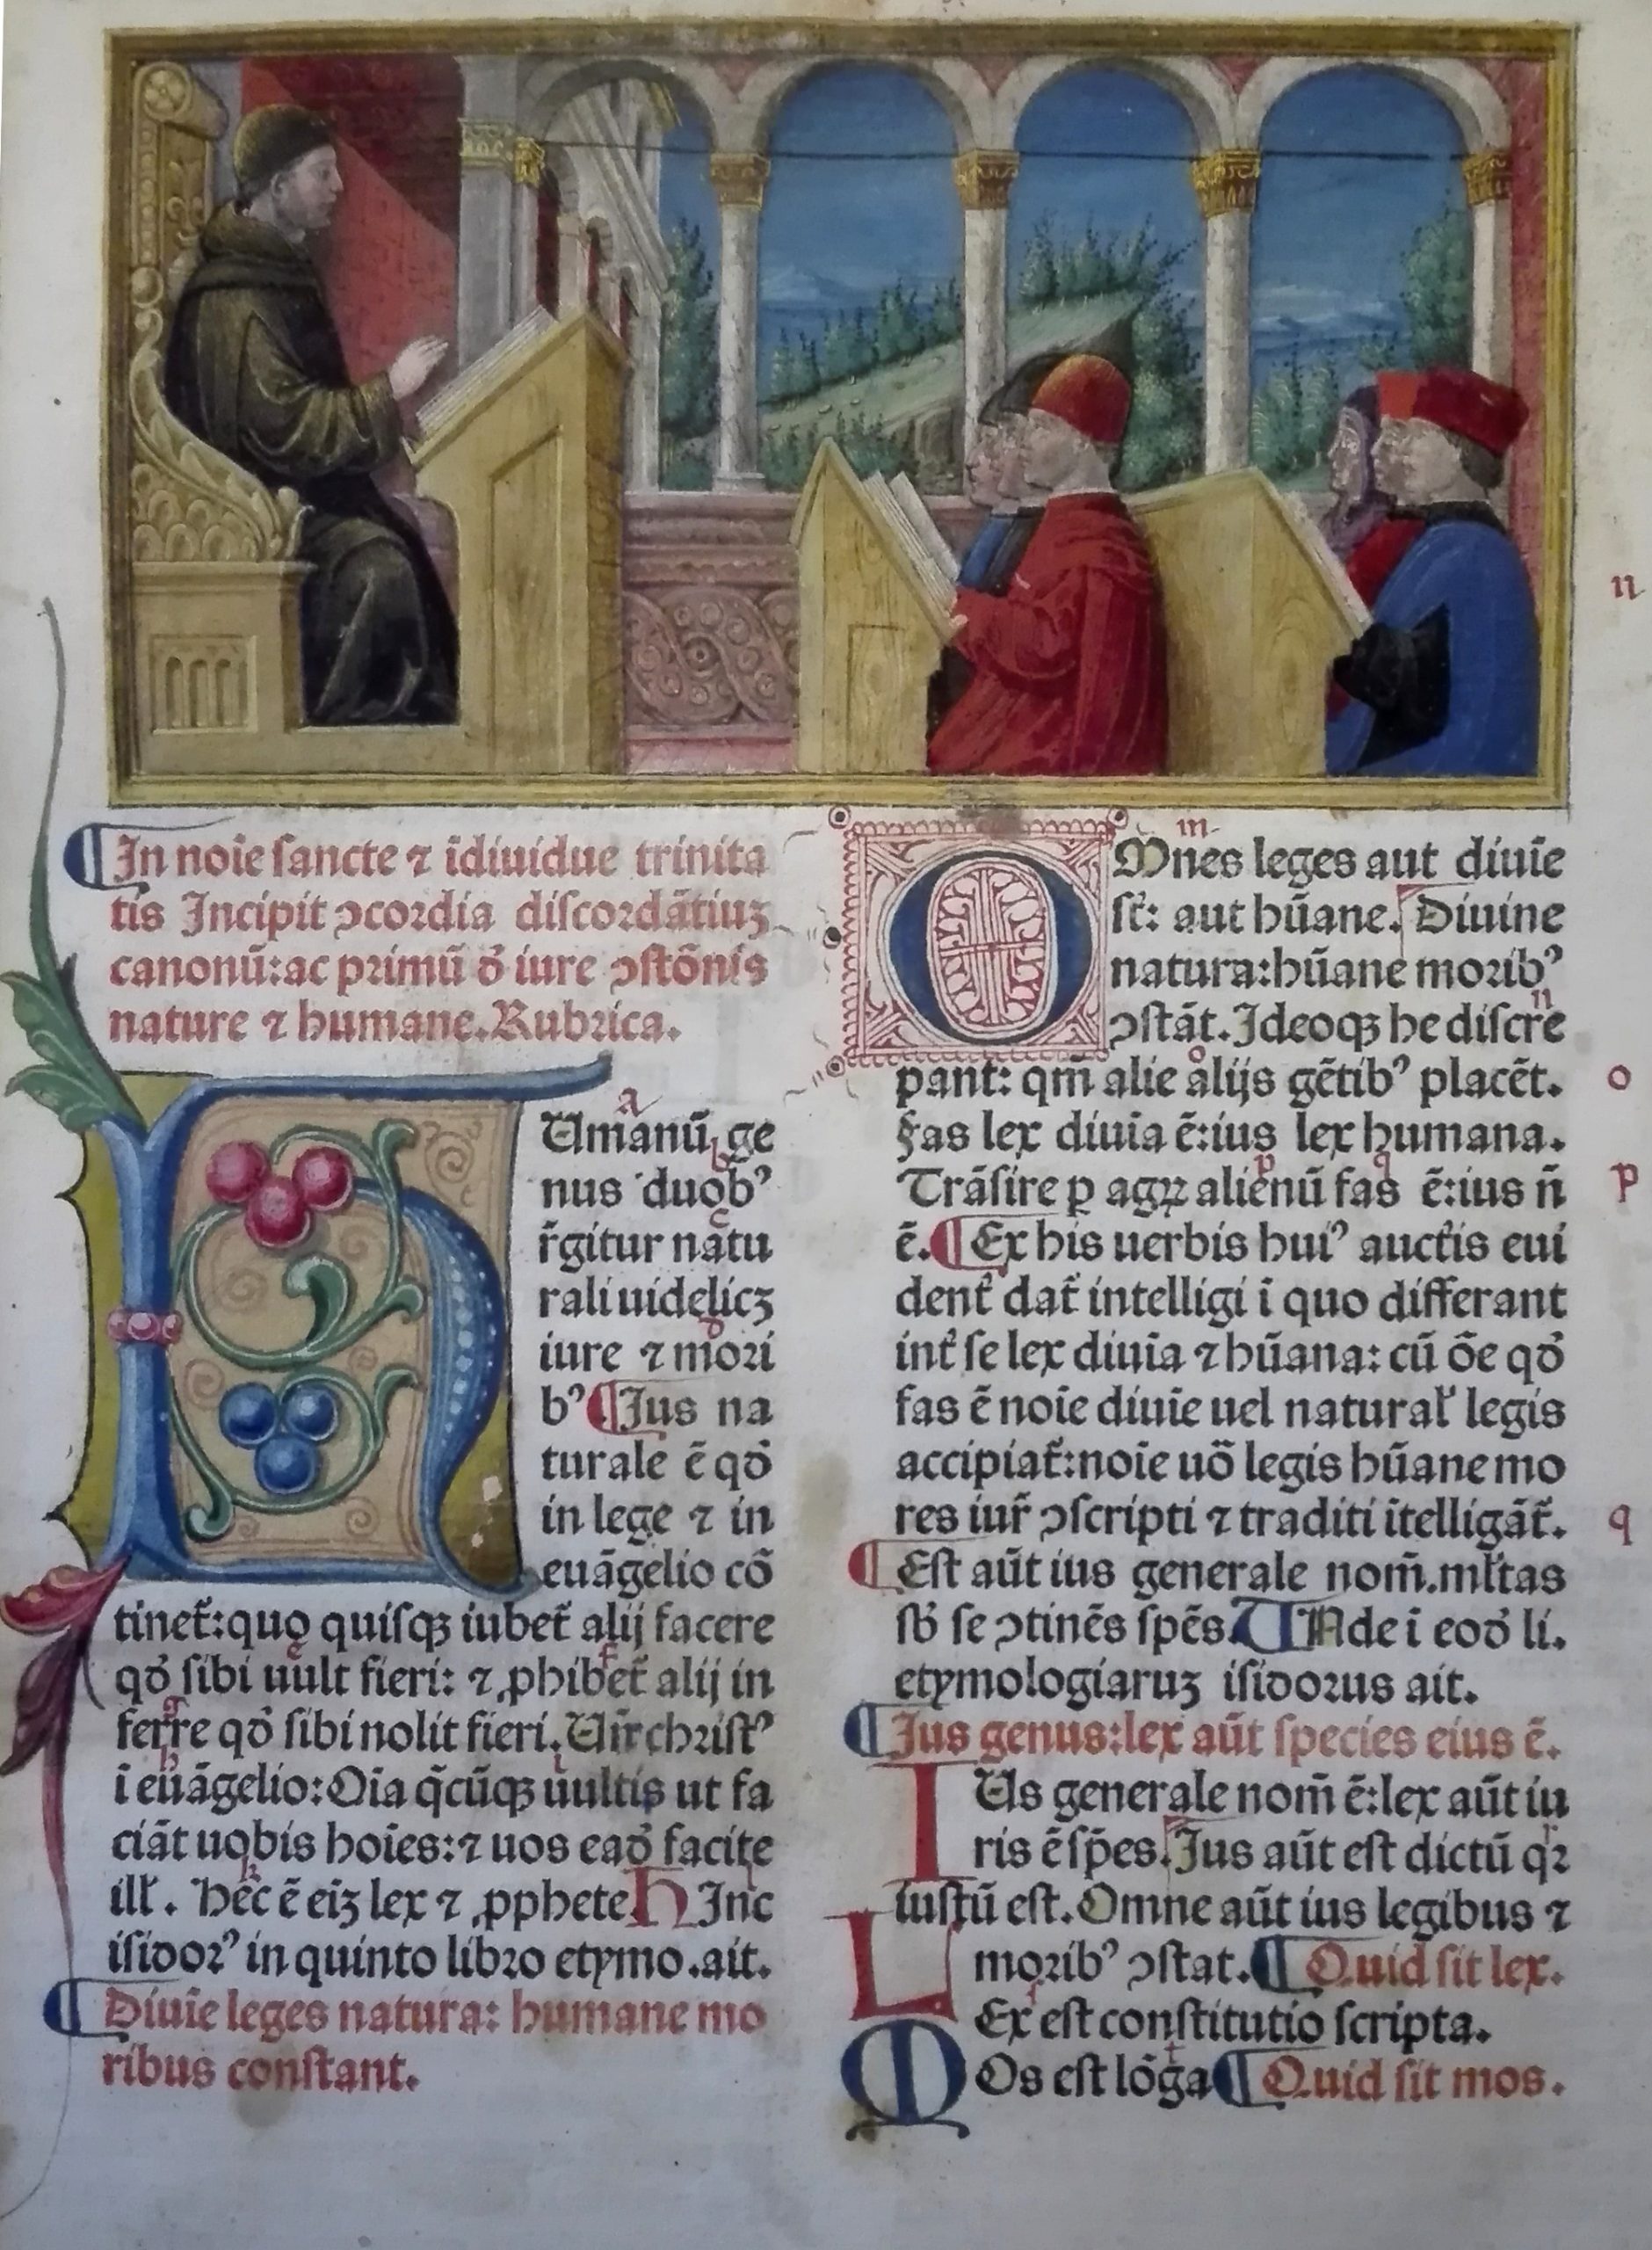 In noīe sancte ⁊ īdiuidue trinita
tis Incipit ↄcordia discordātiuꝫ
canonū: ac primū ð iure ↄstōnis
nature ⁊ humane. Rubrica.
HUmanū ge
nus duobꝰ
r̄gitur natu
rali uidelicꝫ
iure ⁊ mori
bꝰ ¶ Jus na
turale ē qð
in lege ⁊ in
euāgelio cō
tinet̄: quo quisqꝫ iubet̄ alij facere
qð sibi uult fieri: ⁊ ꝓhibet̄ alij in
ferre qð sibi nolit fieri. Uñ christꝰ
ī euāgelio: Oīa q̄cūqꝫ uultis ut fa
ciāt uobis hoīes: ⁊ uos eað facite
ill̄. hec̄ ē eīꝫ lex ⁊ ꝓphete HInc
isidorꝰ in quinto libro etymo. ait.
¶ Diuīe leges natura: humane mo
ribus constant.
OMnes leges aut diuīe
st̄: aut hūane. Diuine
natura: hūane moribꝰ
ↄstāt. Ideoqꝫ he discre
pant: qm̄ alie alijs gētibꝰ placēt.
Fas lex diuīa ē: ius lex humana.
Trāsire p agꝝ alienū fas ē: ius ñ
ē. ¶ Ex his uerbis huiꝰ auct̄is eui
dent̄ dat̄ intelligi ī quo differant
int̄ se lex diuīa ⁊ hūana: cū ōe qð
fas ē noīe diuīe uel natural̄ legis
accipiat̄: noīe uō legis hūane mo
res iur̄ ↄscripti ⁊ traditi ītelligāt̄.
¶ Est aūt ius generale nom̄. ml̄tas
sb̄ se ↄtinēs spēs. UNde ī eoð li.
etymologiaruꝫ isidorus ait.
¶ Jus genus: lex aūt species eius ē.
IUs generale nom̄ ē: lex aūt iu
ris ē sp̄es. Jus aūt est dictū qꝛ
iustū est. Omne aūt ius legibus ⁊
moribꝰ ↄstat. ¶ Quid sit lex.
LEx est constitutio scripta.
MOs est lōga ¶ Quid sit mos.
n
o
p
q